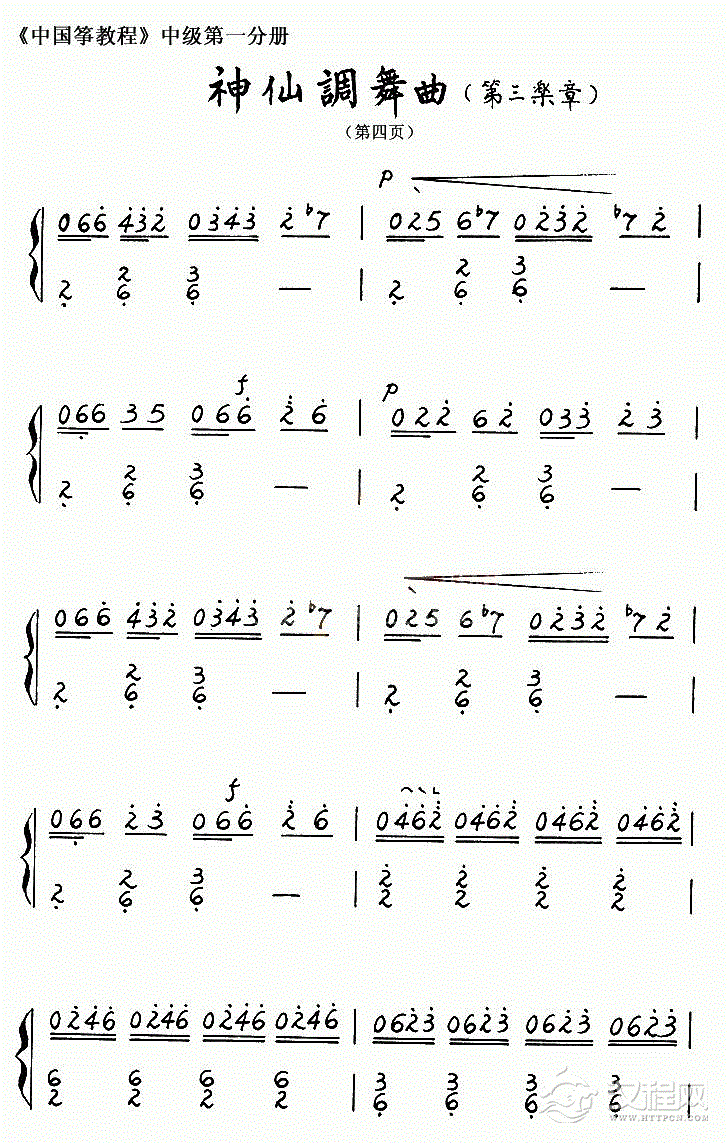 《中国筝教程》中级第一分册
神仙調舞曲(第三楽章)
(第四页)
p
066 432 0343 2 ♭7 | 025 6♭7 0232 ♭7 2 |
2 2 3 — | 2 2 3 — |
6 6 6 6
f p
066 35 066 2 6 | 022 62 033 2 3 |
2 2 3 — | 2 2 3 — |
6 6 6 6
066 432 0343 2 ♭7 | 025 6♭7 0232 ♭7 2 |
2 2 3 — | 2 2 3 — |
6 6 6 6
f
066 2 3 066 2 6 | 0462 0462 0462 0462 |
2 2 3 — | 2 2 2 2 |
6 6 2 2 2 2
0246 0246 0246 0246 | 0623 0623 0623 0623 |
6 6 6 6 | 3 3 3 3
2 2 2 2 6 6 6 6
汉程网
WWW.HTTPCN.COM